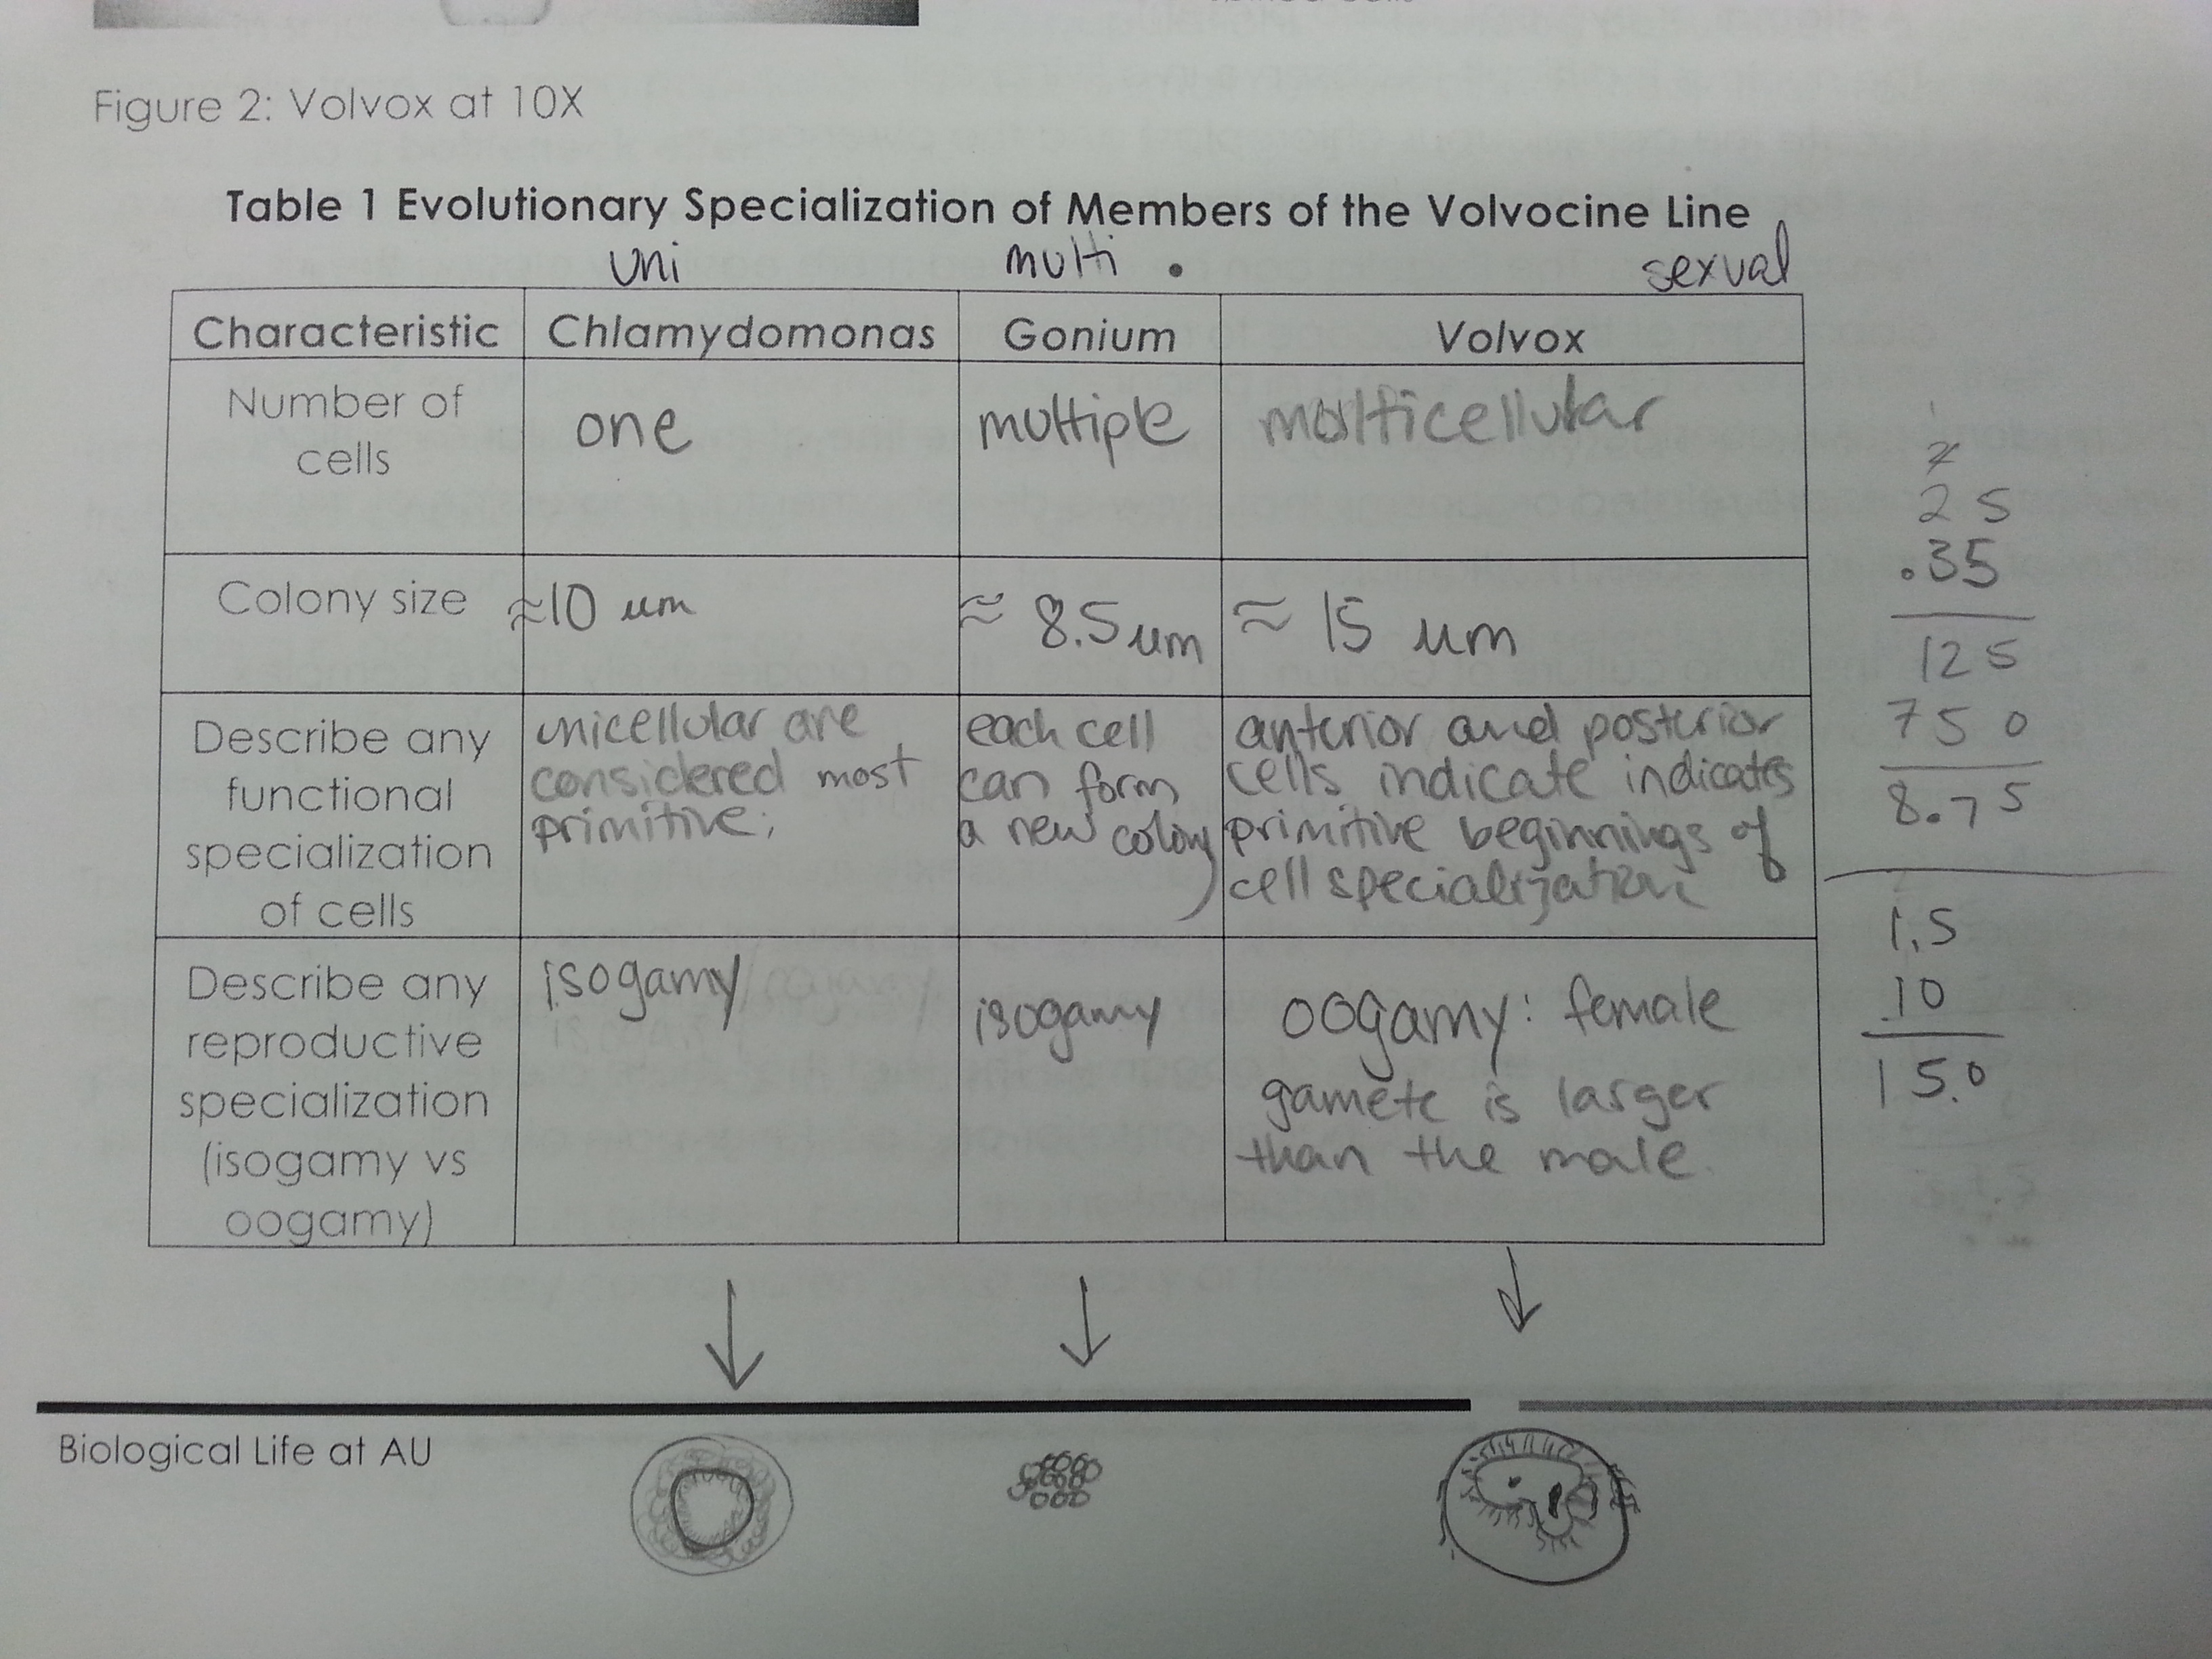 Figure 2: Volvox at 10X
Table 1 Evolutionary Specialization of Members of the Volvocine Line
uni multi . sexual
Characteristic Chlamydomonas Gonium Volvox
Number of
cells
one
multiple
multicellular
Colony size
≈10 um
≈ 8.5 um
≈ 15 um
Describe any
functional
specialization
of cells
unicellular are
considered most
primitive;
each cell
can form
a new colony
anterior and posterior
cells indicate indicates
primitive beginnings of
cell specialization
Describe any
reproductive
specialization
(isogamy vs
oogamy)
isogamy
isogamy
oogamy: female
gamete is larger
than the male.
25
.35
125
750
8.75
1.5
10
15.0
Biological Life at AU